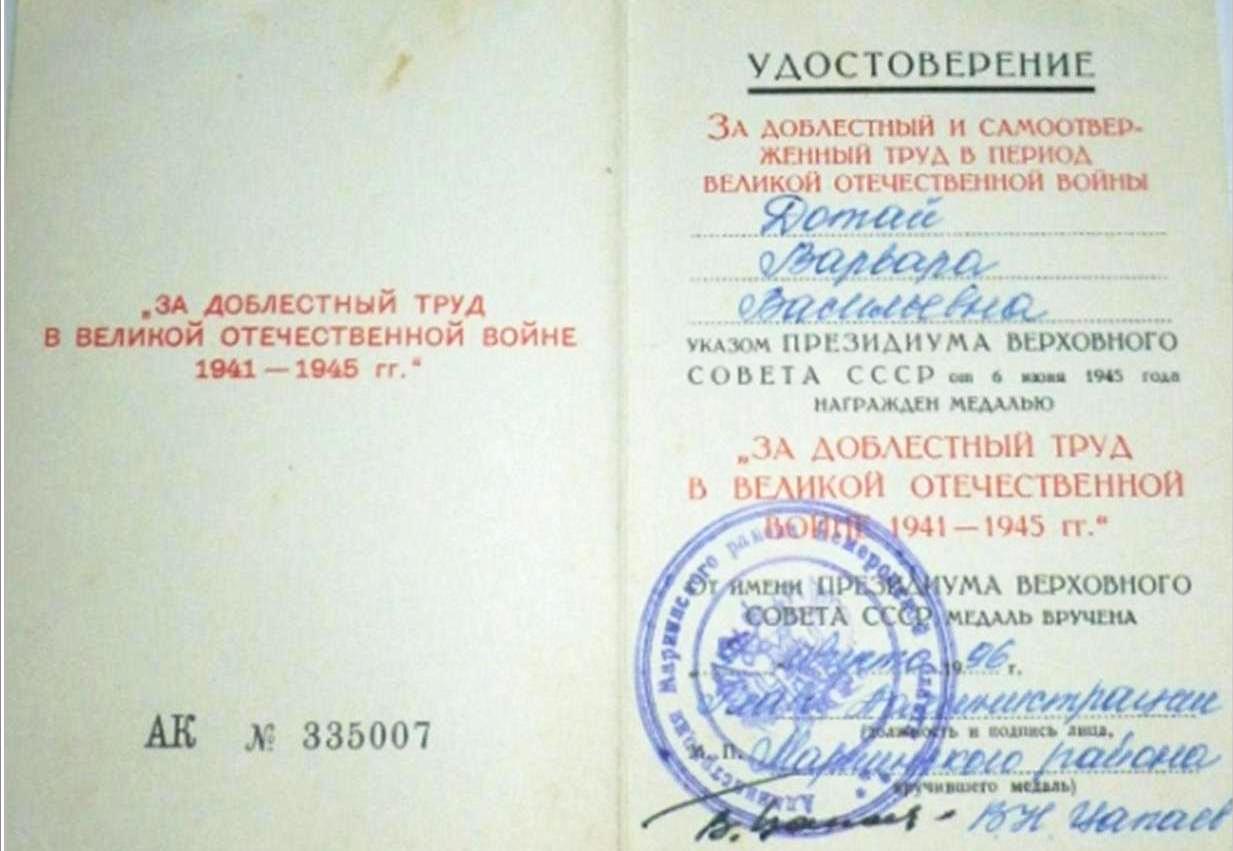 „ЗА ДОБЛЕСТНЫЙ ТРУД
В ВЕЛИКОЙ ОТЕЧЕСТВЕННОЙ ВОЙНЕ
1941 — 1945 гг.“
АК № 335007
УДОСТОВЕРЕНИЕ
ЗА ДОБЛЕСТНЫЙ И САМООТВЕР-
ЖЕННЫЙ ТРУД В ПЕРИОД
ВЕЛИКОЙ ОТЕЧЕСТВЕННОЙ ВОЙНЫ
Дотай
Варвара
Васильевна
УКАЗОМ ПРЕЗИДИУМА ВЕРХОВНОГО
СОВЕТА СССР от 6 июня 1945 года
НАГРАЖДЕН МЕДАЛЬЮ
„ЗА ДОБЛЕСТНЫЙ ТРУД
В ВЕЛИКОЙ ОТЕЧЕСТВЕННОЙ
ВОЙНЕ 1941 — 1945 гг.“
От имени ПРЕЗИДИУМА ВЕРХОВНОГО
СОВЕТА СССР МЕДАЛЬ ВРУЧЕНА
августа 1996 г.
Глава Администрации
(должность и подпись лица,
М. П. Мариинского района
вручившего медаль)
В.Н. Цапаев
Администрация Мариинского района Кемеровской области